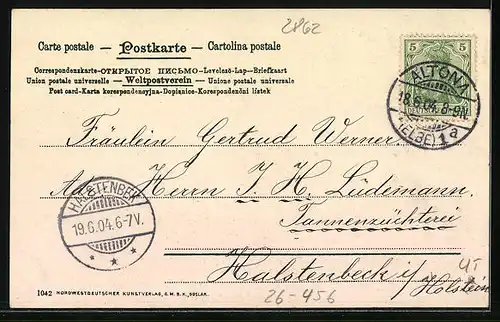 2862
Carte postale — Postkarte — Cartolina postale
Correspondenzkarte-ОТКРЫТОЕ ПИСЬМО-Levelező-Lap-Briefkaart
Union postale universelle — Weltpostverein — Unione postale universale
Post card-Karta korespondencyjna-Dopisnice-Korespondenční lístek
5 5
ALTONA
18.6.04.8-9N
(ELBE) 1a
Fräulein Gertrud Werner
Adr. Herrn J. H. Lüdemann.
Tannenzüchterei
HALSTENBEK
19.6.04.6-7V.
Halstenbeck i/Holstein
26-456
1042 NORDWESTDEUTSCHER KUNSTVERLAG, G.M.B.H., GOSLAR.